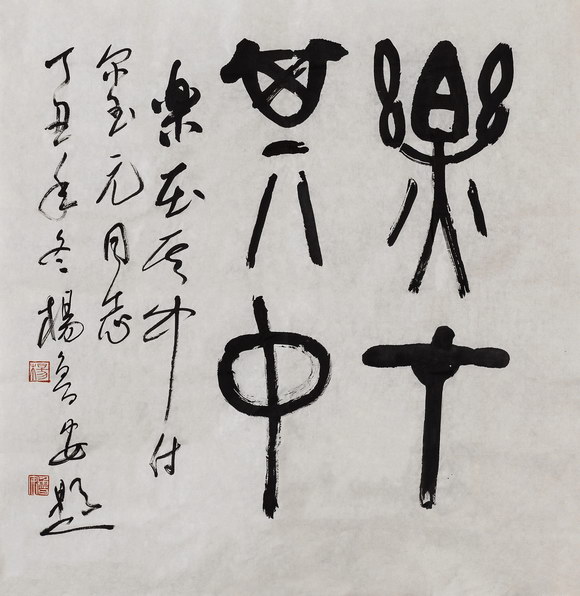 樂在
其中
樂在其中付
元同志
丁丑年冬楊魯安題